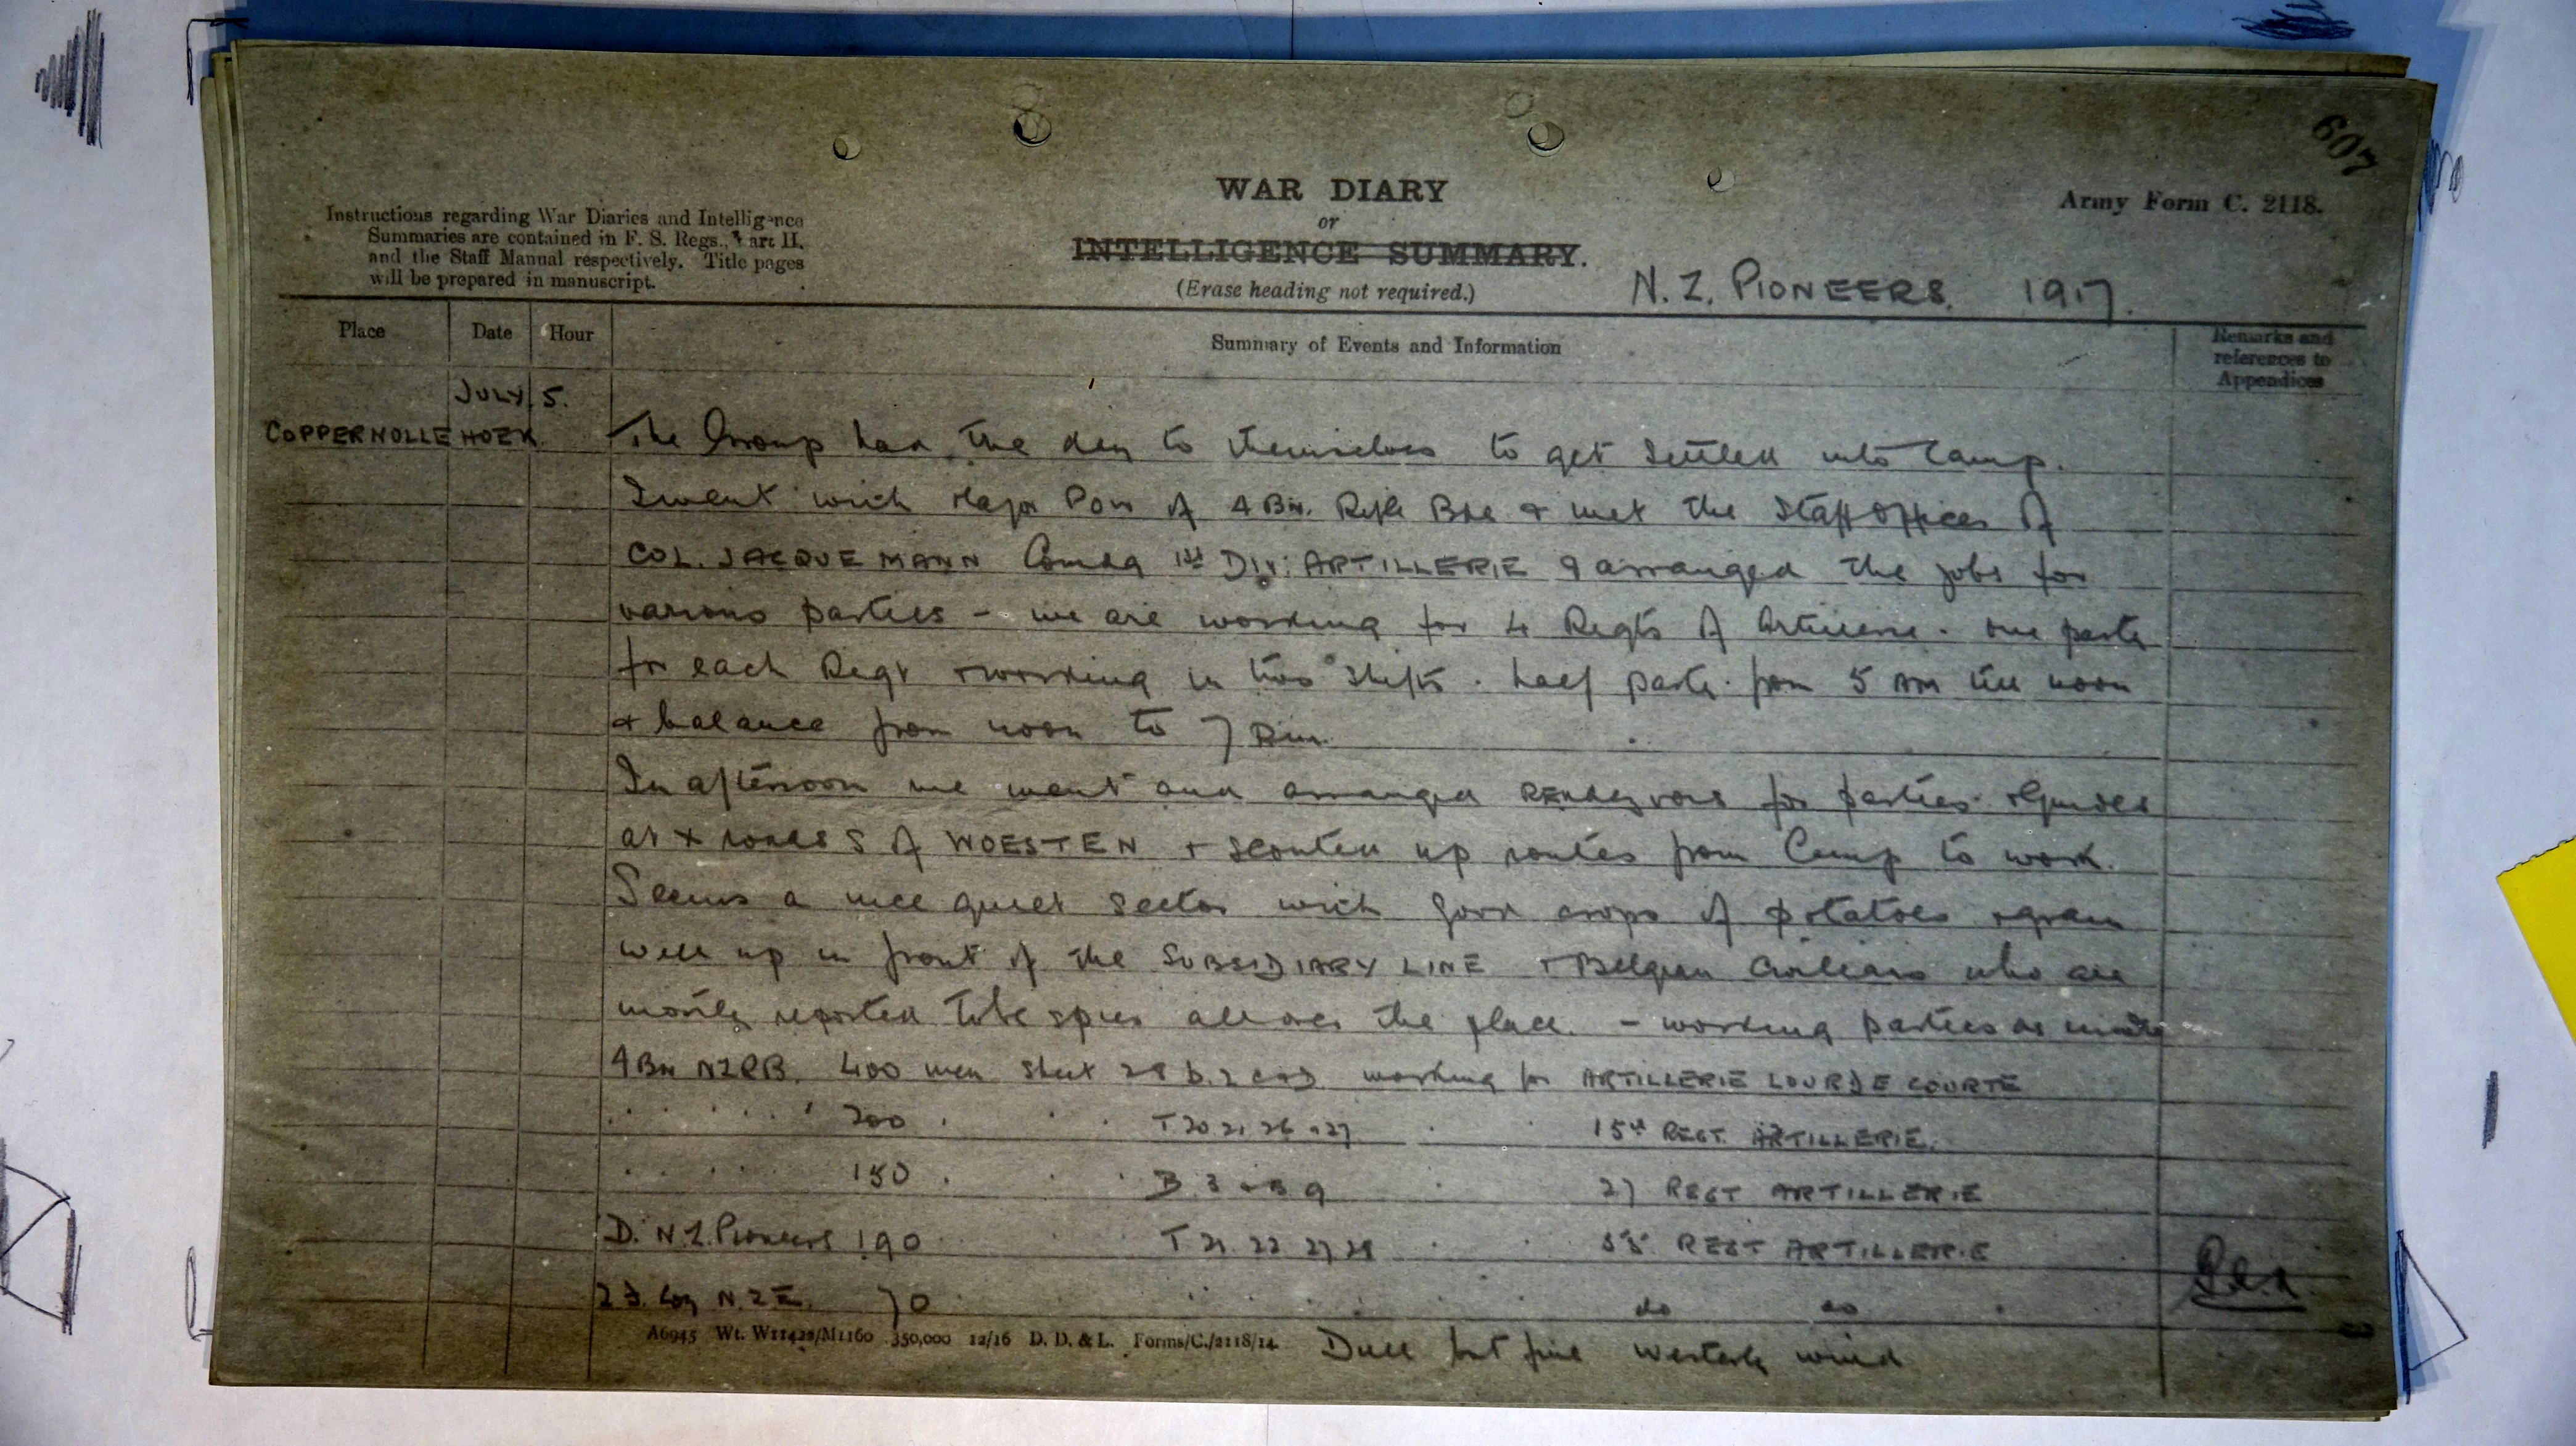 607
WAR DIARY
or
INTELLIGENCE SUMMARY.
(Erase heading not required.)
Army Form C. 2118.
Instructions regarding War Diaries and Intelligence
Summaries are contained in F. S. Regs., Part II.
and the Staff Manual respectively. Title pages
will be prepared in manuscript.
N. Z. PIONEERS. 1917.
Place Date Hour Summary of Events and Information Remarks and
references to
Appendices
JULY 5.
COPPERNOLLE HOEK. The Group had the day to themselves to get settled into Camp.
I went with Major Pow of 4 Bn. Rifle Bde & met the Staff Officer of
COL. JACQUEMANN Comdg 1st Div: ARTILLERIE & arranged the jobs for
various parties - we are working for 4 Regts of Artillerie. one party
for each Regt & working in two shifts. half party from 5 AM till noon
& balance from noon to 7 P.m.
In afternoon we went and arranged RENdezvous for parties & guides
at X roads S of WOESTEN & scouted up routes from Camp to work.
Seems a nice quiet sector with good crops of potatoes & grain
well up in front of the SUBSIDIARY LINE & Belgian Civilians who are
mostly reported to be spies all over the place. - working parties as under
4 Bn NZRB. 400 men Sheet 28 b. 2 c & d working for ARTILLERIE LOURDE COURTE
200 T 20 21 26 & 27 15th REGT. ARTILLERIE.
150 B. 3 & B 9 27 REGT ARTILLERIE
D. N.Z. Pioneers 190 T 21 22 27 28 55 REGT ARTILLERIE
2 F. Coy N.Z.E. 70 do do
A6945 Wt. W11422/M1160 350,000 12/16 D. D. & L. Forms/C./2118/14.
Dull but fine westerly wind